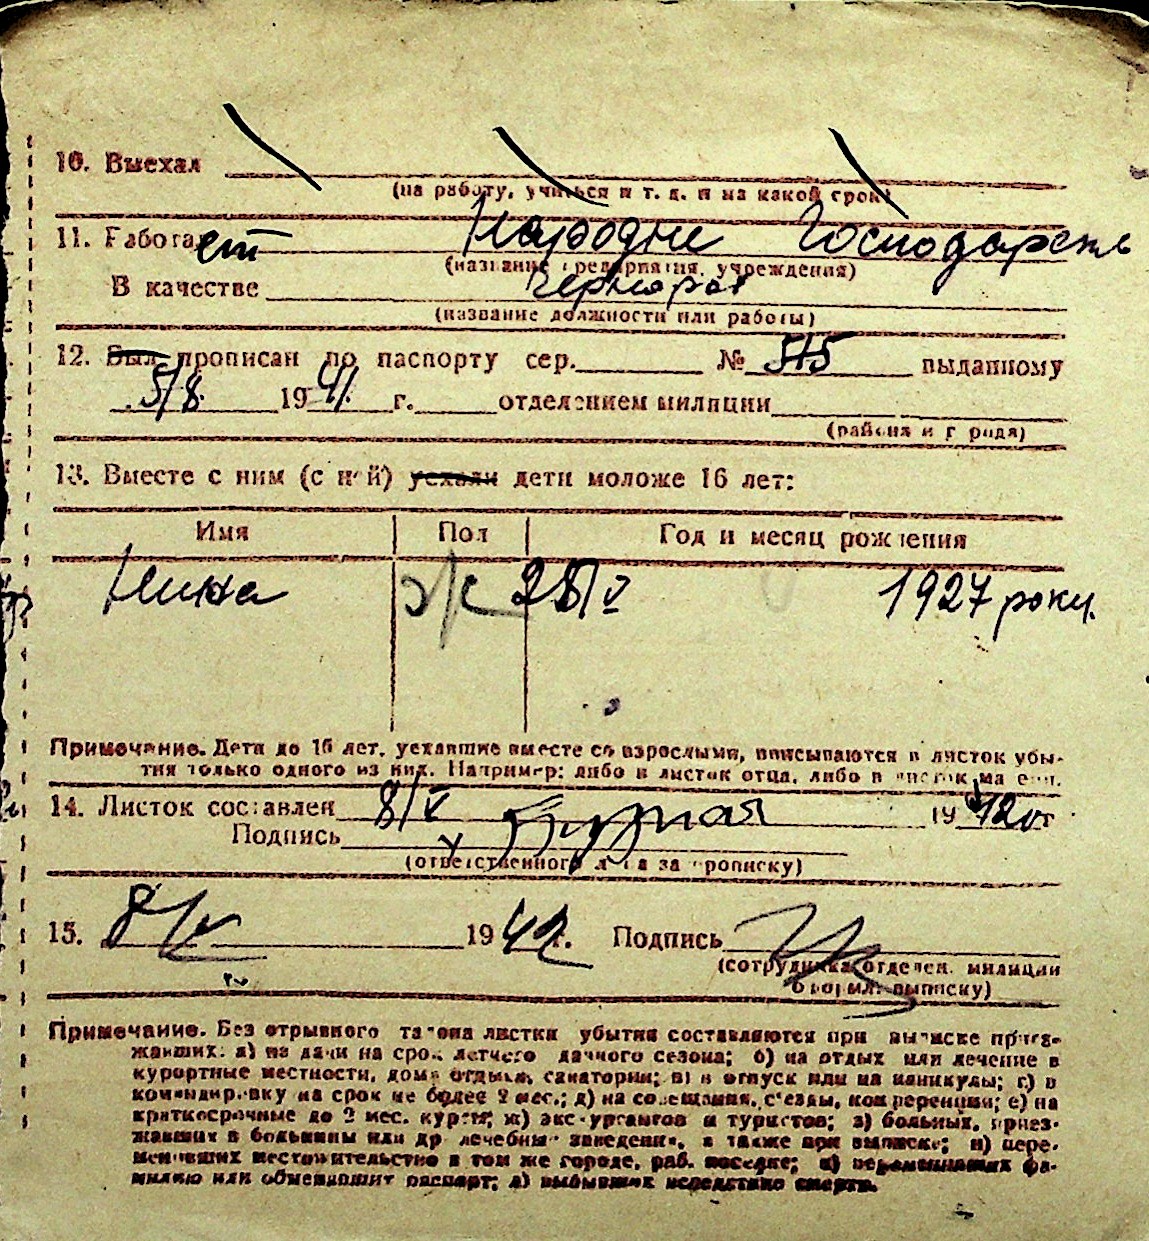 10. Выехал
(на работу, учиться и т. д. и на какой срок)
11. Работает Народне Господарств
(название предприятия, учреждения)
В качестве Чернораб
(название должности или работы)
12. Был прописан по паспорту сер. № 515 выданному
5/8 1941 г. отделением милиции
(района и города)
13. Вместе с ним (с ней) уехали дети моложе 16 лет:
Имя Пол Год и месяц рождения
Нина ж 28/V 1927 року.
Примечание. Дети до 16 лет, уехавшие вместе со взрослыми, вписываются в листок убы-
тия только одного из них. Например: либо в листок отца, либо в листок матери.
14. Листок составлен 8/V 1942 г
Подпись
(ответственного лица за прописку)
15. 8/V 1942 г. Подпись
(сотрудника отделен. милиции
оформл. выписку)
Примечание. Без отрывного талона листки убытия составляются при выписке приез-
жавших: а) на дачи на срок летнего дачного сезона; б) на отдых или лечение в
курортные местности, дома отдыха, санатории; в) в отпуск или на каникулы; г) в
командировку на срок не более 2 мес.; д) на совещания, съезды, конференции; е) на
краткосрочные до 2 мес. курсы; ж) экскурсантов и туристов; з) больных, приез-
жавших в больницы или др лечебные заведения, а также при выписке; и) пере-
менивших местожительство в том же городе, раб. поселке; к) переменивших фа-
милию или обменявших паспорт; л) выбывших вследствие смерти.